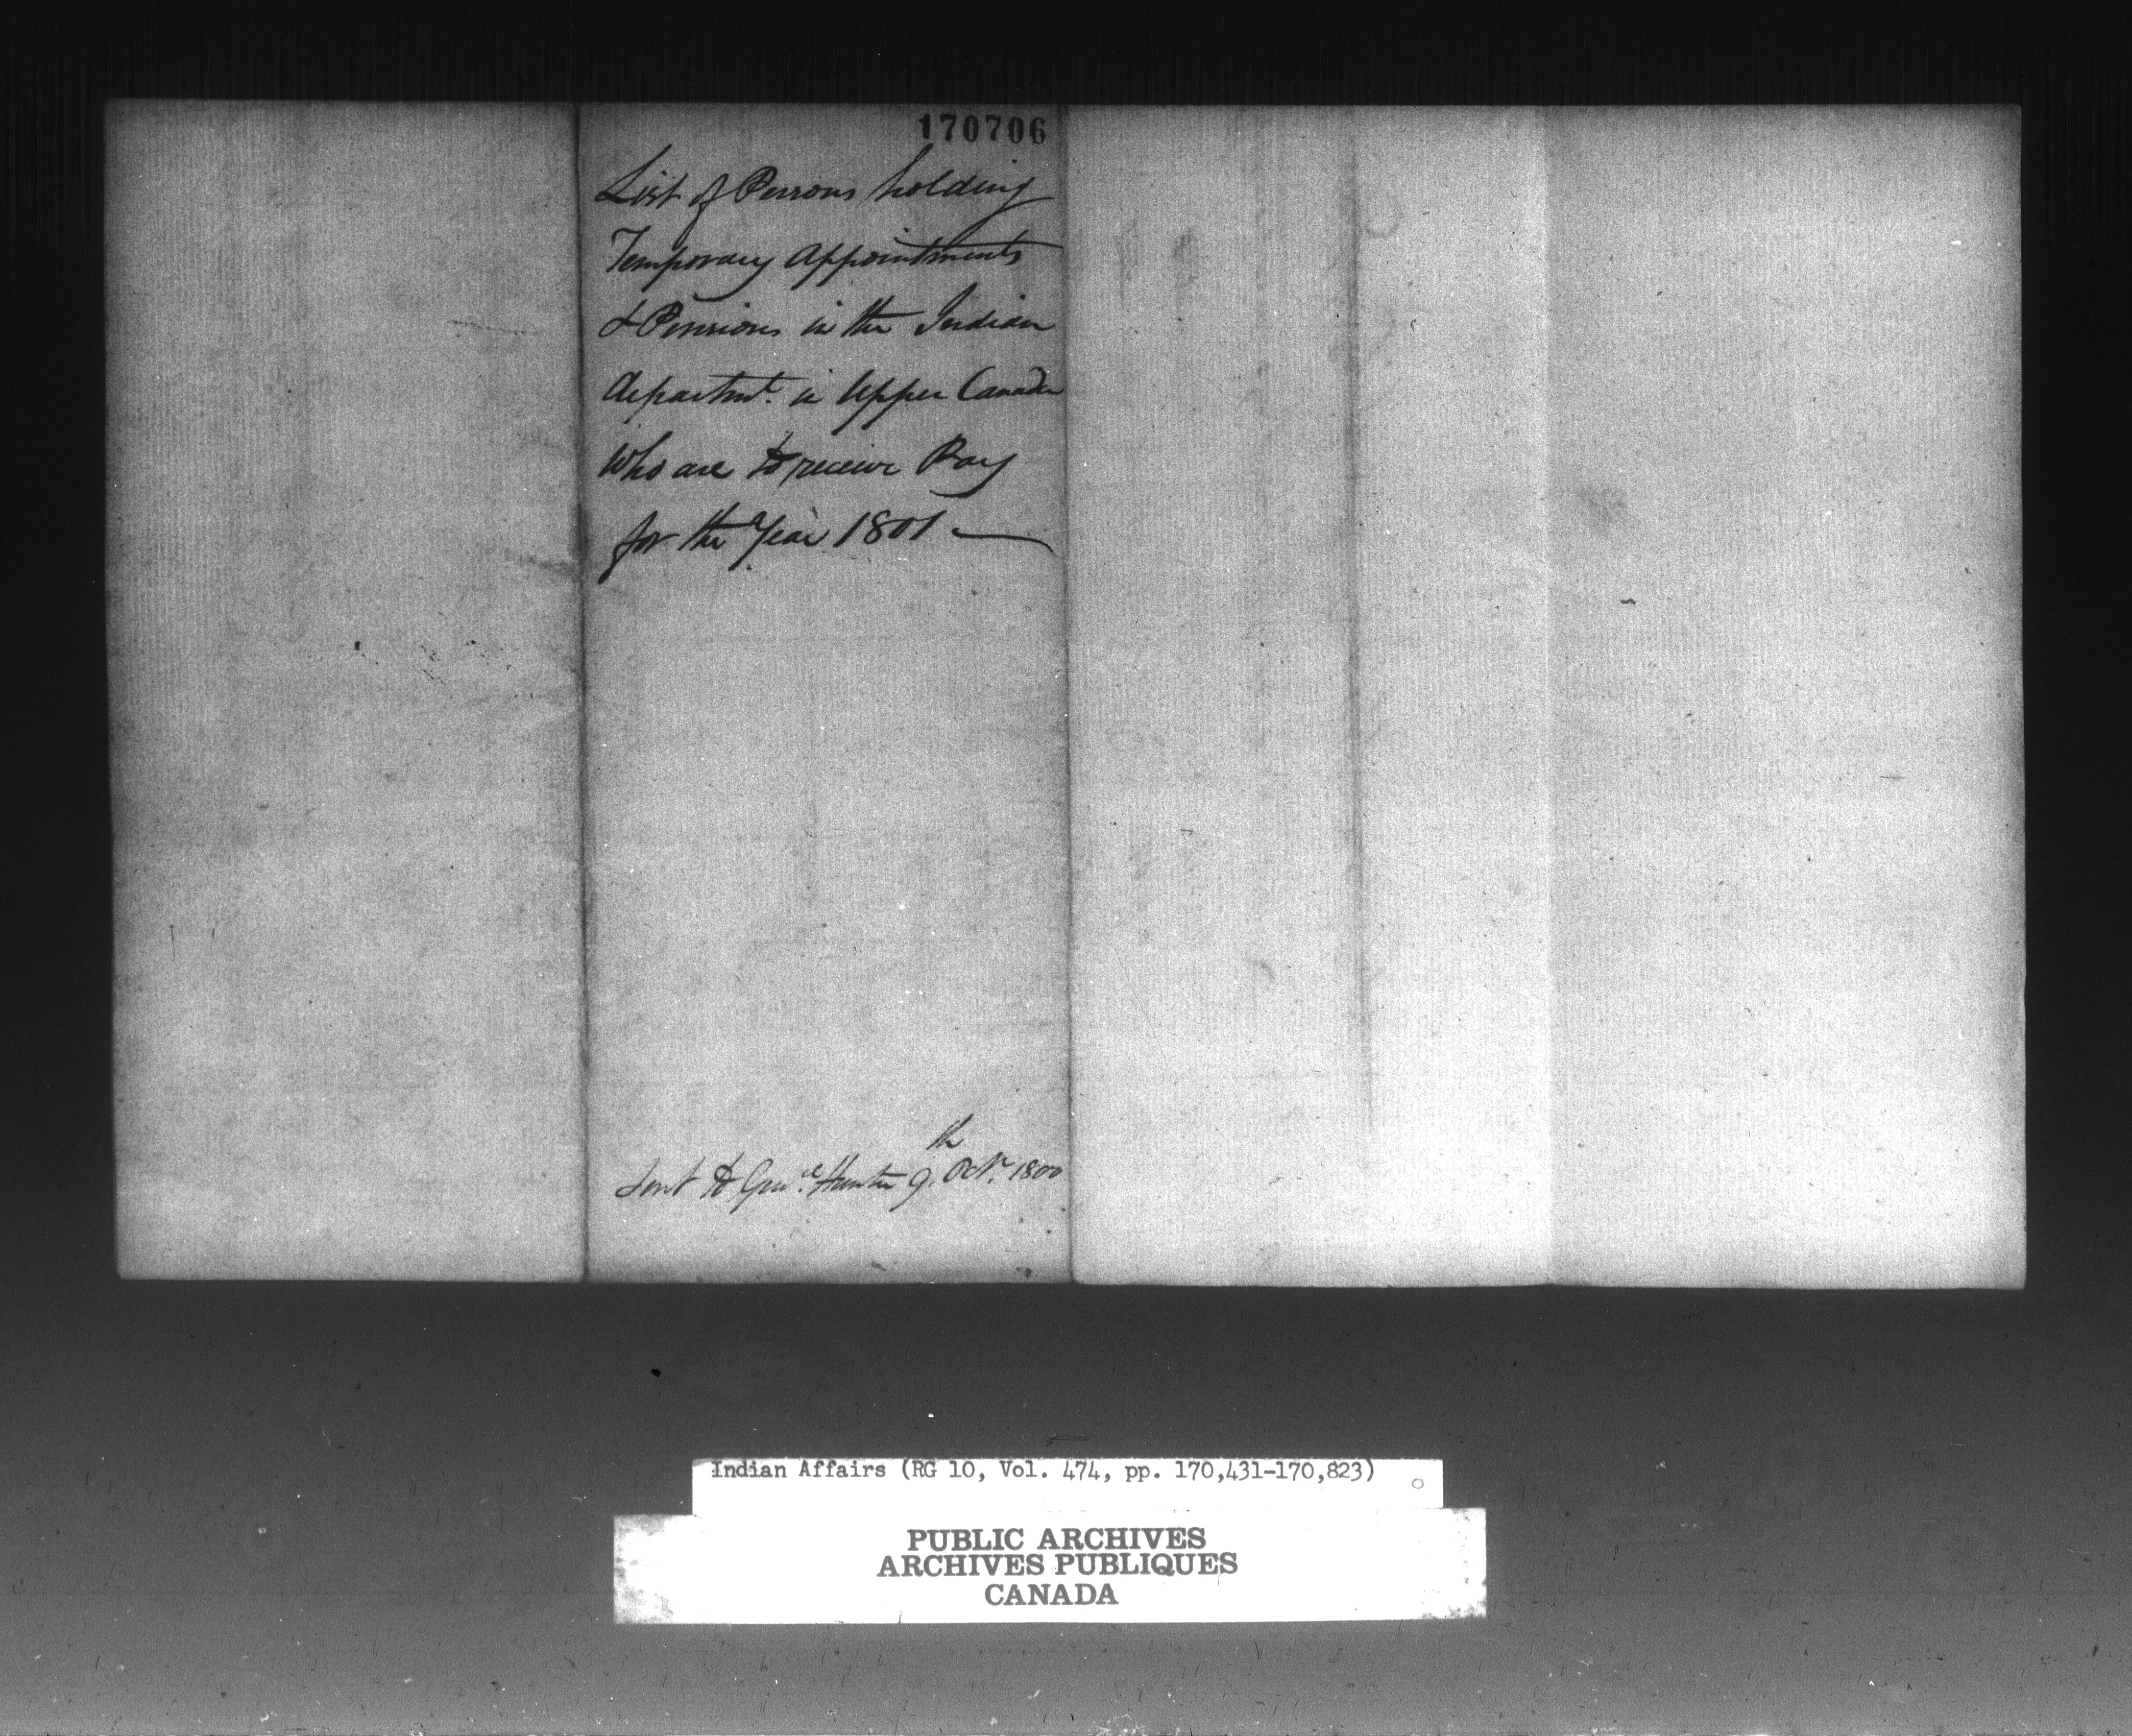 170706
List of Persons holding
Temporary Appointments
& Pensions in the Indian
departmt. in Upper Canada
Who are to receive Pay
for the Year 1801 —
Sent to Genl. Hunter 9th. Octr. 1800
Indian Affairs (RG 10, Vol. 474, pp. 170,431-170,823)
PUBLIC ARCHIVES
ARCHIVES PUBLIQUES
CANADA